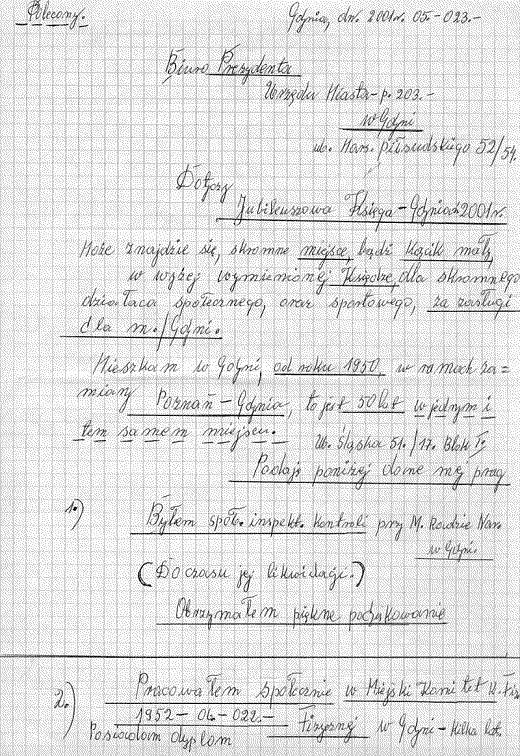 Polecony.
Gdynia, dn. 2001r. 05.-023.-
Biuro Prezydenta
Urzędu Miasta - p. 203.-
w Gdyni
ul. Mars. Piłsudskiego 52/54.
Dotyczy
Jubileuszowa Księga - Gdynia 2001r.
Może znajdzie się, skromne miejsce, bądź kącik mały,
w wyżej wymienionej Księdze, dla skromnego
działacza społecznego, oraz sportowego, za zasługi
dla m./Gdyni.
Mieszkam w Gdyni, od roku 1950, w ramach za=
miany Poznań - Gdynia, to jest 50 lat w jednym i
tem samem miejscu.-
Ul. Śląska 51./17. Blok I.
Podaję poniżej dane mej pracy
1.) Byłem społ. inspekt. kontroli przy M. Radzie Nar.
w Gdyni.
(Do czasu jej likwidacji.)
Otrzymałem piękne podziękowanie
2.) Pracowałem społecznie w Miejski Komi tet K. Fiz
1952 - 04. - 022. - Fizycznej w Gdyni - Kilka lat.
Posiadam dyplom